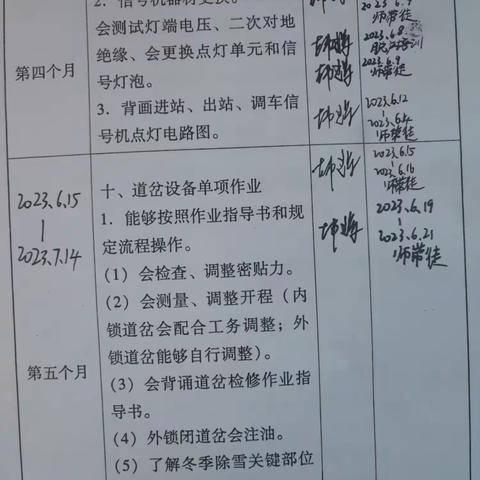 2. 信号机器材更换。
会测试灯端电压、二次对地
绝缘、会更换点灯单元和信
号灯泡。
3. 背画进站、出站、调车信
号机点灯电路图。
第四个月
师带徒
2023.6.8
2023.6.9
师带徒
2023.6.12
师带徒
2023.6.15
2023.7.14
第五个月
十、道岔设备单项作业
1. 能够按照作业指导书和规
定流程操作。
(1) 会检查、调整密贴力。
(2) 会测量、调整开程（内
锁道岔会配合工务调整；外
锁道岔能够自行调整）。
(3) 会背诵道岔检修作业指
导书。
(4) 外锁闭道岔会注油。
(5) 了解冬季除雪关键部位
2023.6.15
2023.6.16
师带徒
2023.6.19
2023.6.21
师带徒